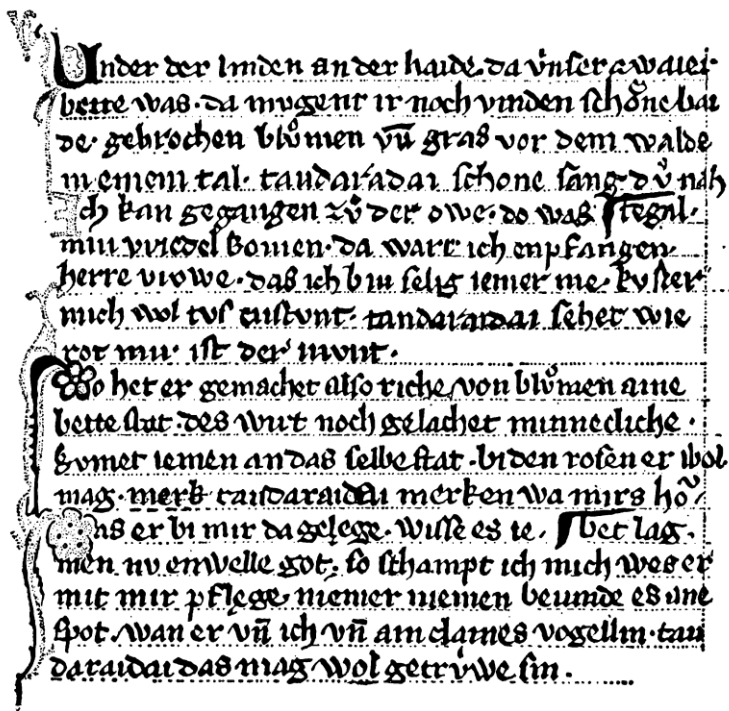 Under der linden an der haide. da vͦnser zwaier
bette was. da mugent ir noch vinden schoͤne bai
de. gebrochen blvͦmen vn̄ gras vor dem walde
in einem tal. tandaradai schone sang dvͥ nah
Ich kan gegangen zvͦ der owe. do was ſtegal.
min vriedel komen. da wart ich enpfangen.
herre vrowe. das ich bin selig iemer me. kvster
mich wol tvsentstvnt. tandaraidai sehet wie
rot mir ist der mvnt.
Do het er gemachet also riche von blvͦmen aine
bette stat. des wirt noch gelachet minnecliche.
kvmet iemen an das selbe stat. bi den rosen er wol
mag. merk tandaraidai merken wa mirs hoͮ
Das er bi mir da gelege. wisse es ie. ſbet lag.
men nv enwelle got. so schampt ich mich wes er
mit mir pflege. niemer niemen bevinde es ane
spot. wan er vn̄ ich vn̄ ain claines vogellin. tan
daraidai das mag wol getrvͥwe sin.